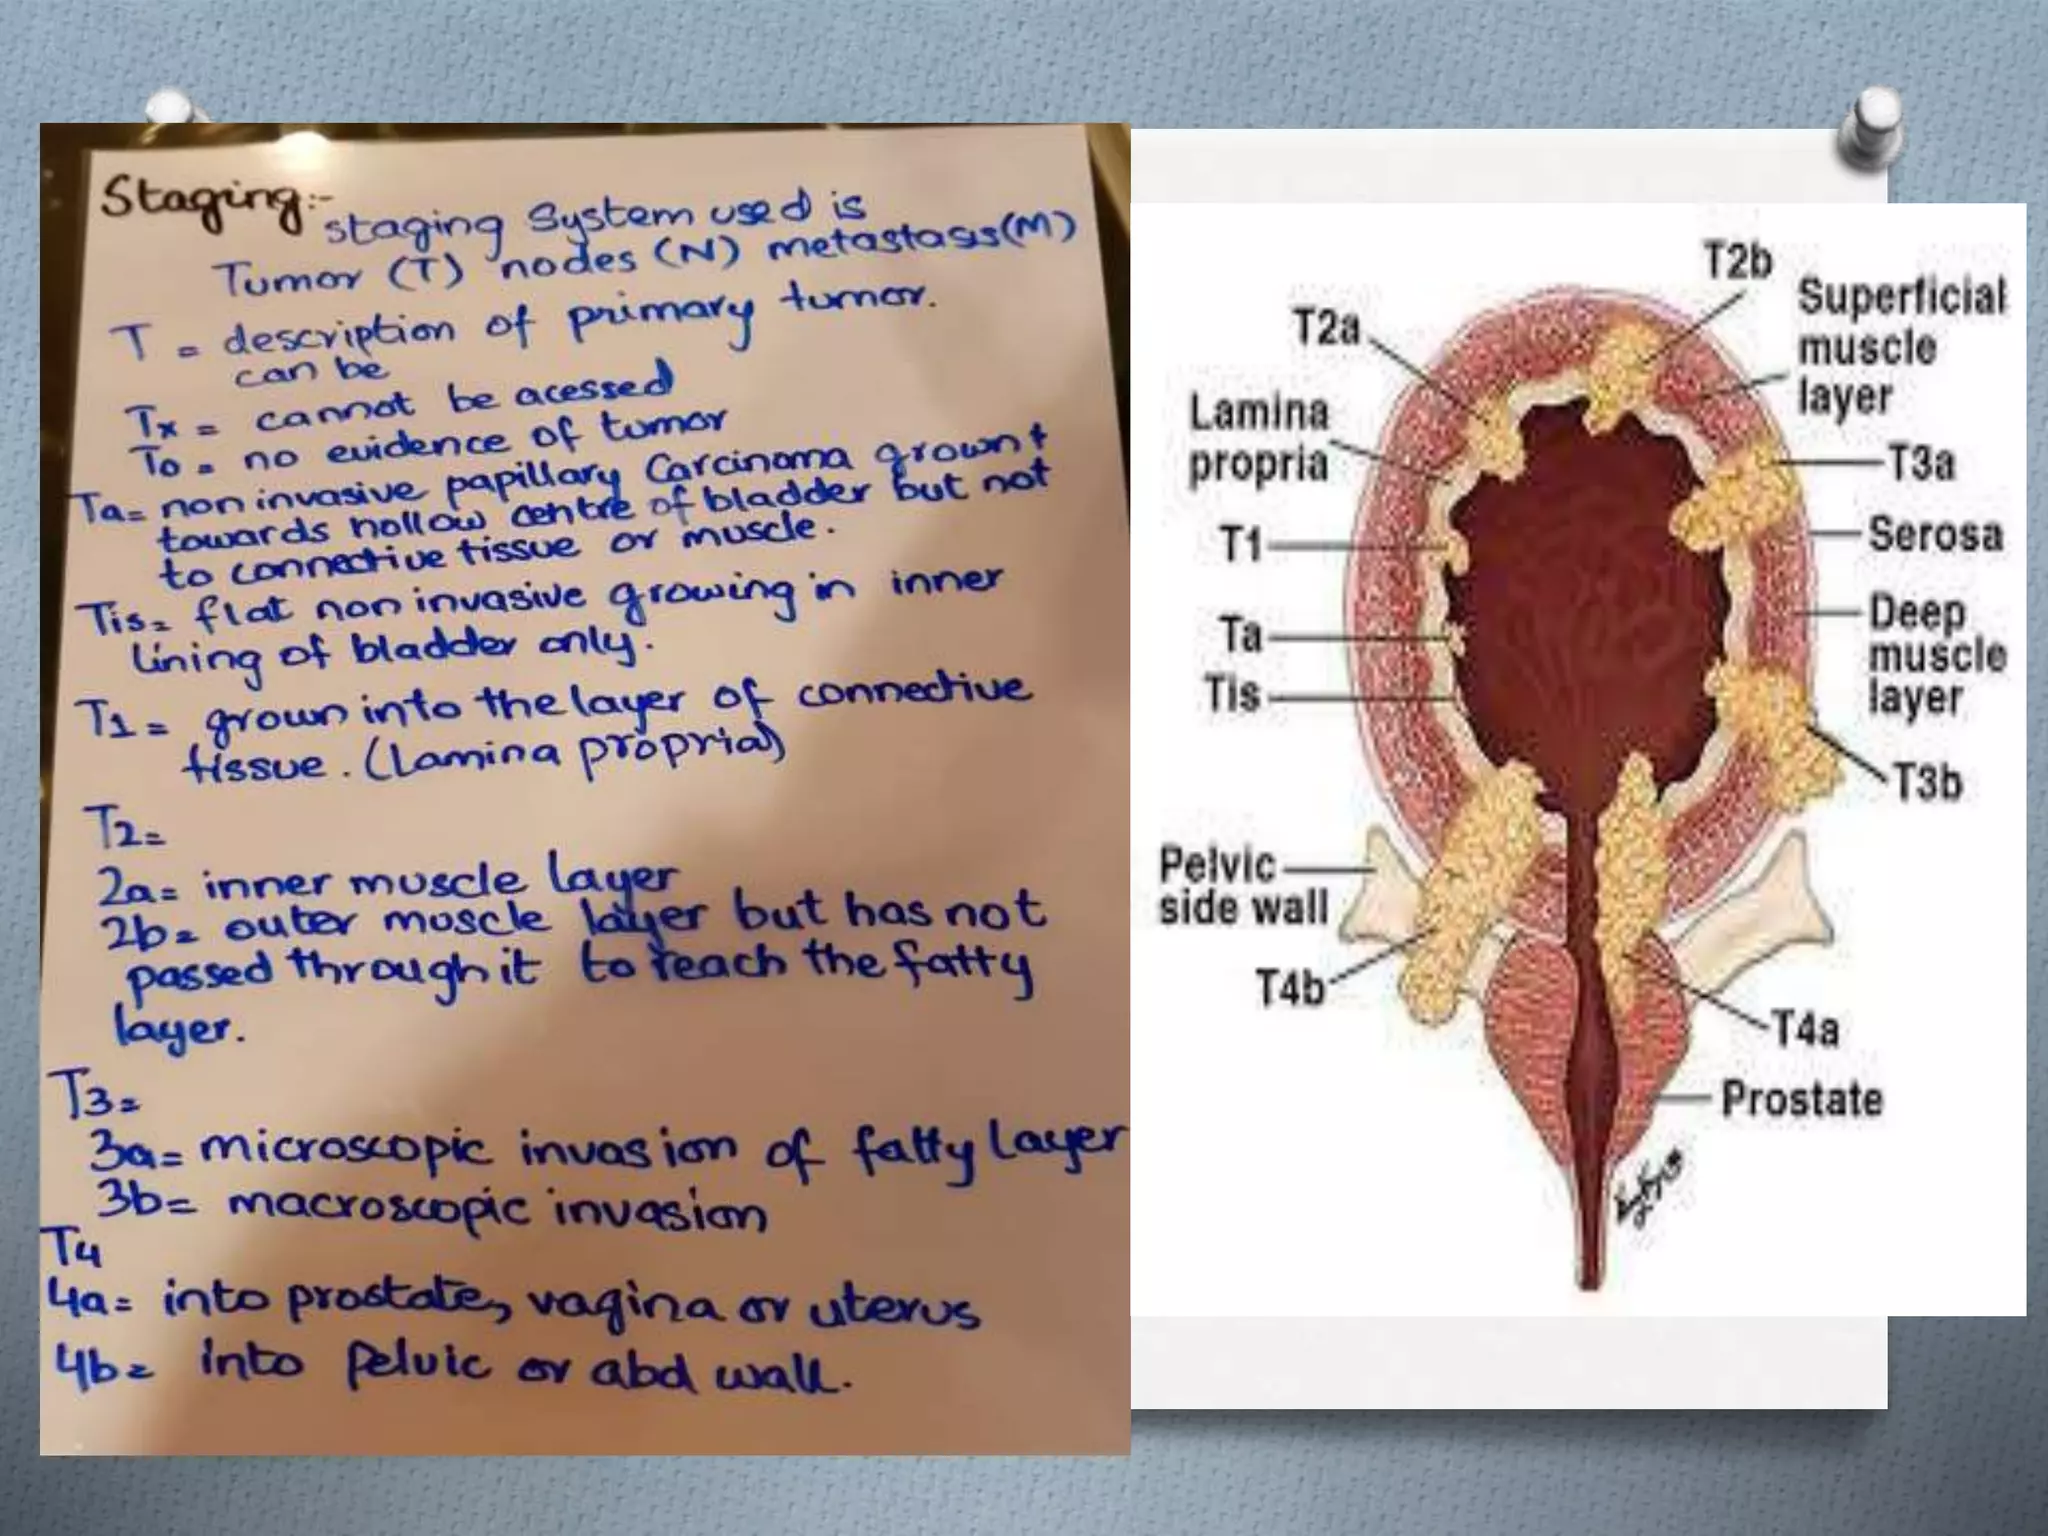 Staging:-
staging System used is
Tumor (T) nodes (N) metastasis(M)
T = description of primary tumor.
can be
Tx = cannot be acessed
To = no evidence of tumor
Ta = non invasive papillary Carcinoma grown
towards hollow centre of bladder but not
to connective tissue or muscle.
Tis = flat non invasive growing in inner
lining of bladder only.
T1 = grown into the layer of connective
tissue. (Lamina propria)
T2 =
2a = inner muscle layer
2b = outer muscle layer but has not
passed through it to reach the fatty
layer.
T3 =
3a = microscopic invasion of fatty Layer
3b = macroscopic invasion
T4
4a = into prostate, vagina or uterus
4b = into pelvic or abd wall.
T2b
Superficial
muscle
layer
T2a
Lamina
propria
T3a
T1
Serosa
Ta
Deep
muscle
layer
Tis
T3b
Pelvic
side wall
T4b
T4a
Prostate